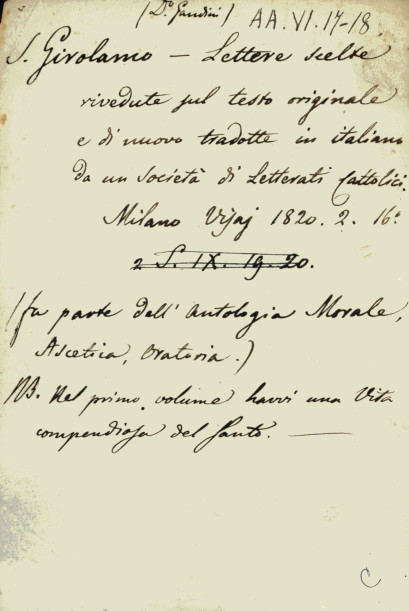 (D.º Gandini) AA. VI. 17-18.
S. Girolamo — Lettere scelte
rivedute sul testo originale
e di nuovo tradotte in italiano
da un Società di Letterati Cattolici.
Milano Vijaj 1820. 2. 16º
2 S. IX. 19. 20.
(fa parte dell' Antologia Morale,
Ascetica, Oratoria.)
NB. Nel primo volume havvi una Vita
compendiosa del Santo. —
C